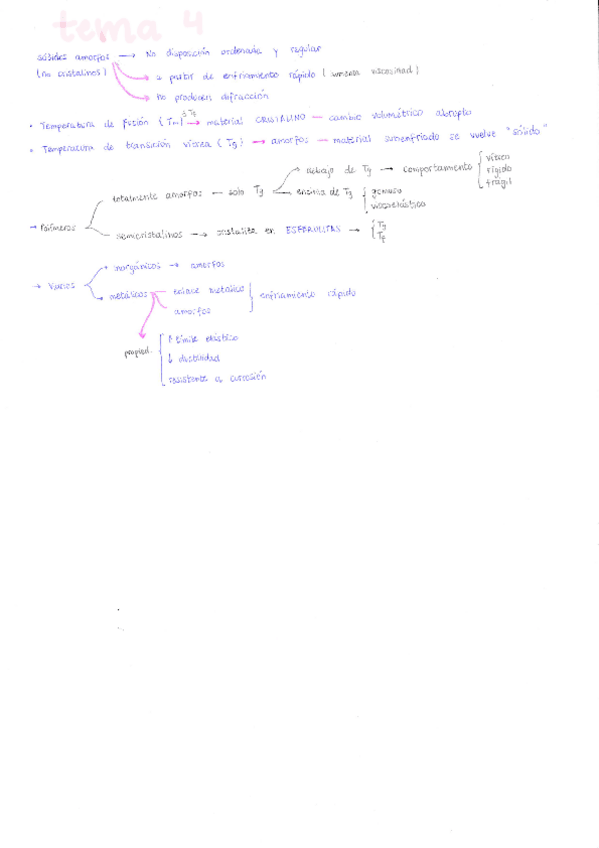 tema 4
sólidos amorfos → No disposición ordenada y regular
(no cristalinos) → a partir de enfriamiento rápido ( viscosidad)
→ no producen difracción
• Temperatura de fusión (Tm) → material CRISTALINO — cambio volumétrico abrupto
• Temperatura de transición vítrea (Tg) → amorfos — material subenfriado se vuelve "sólido"
→ Polímeros
totalmente amorfos — solo Tg
debajo de Tg → comportamiento { vítreo
rígido
frágil
encima de Tg { gomoso
viscoelástico
semicristalinos → cristaliza en ESFERULITAS → { Tg
Tf
→ Vidrios
• inorgánicos → amorfos
• metálicos — enlace metálico
amorfos
} enfriamiento rápido
propied. { ↑ límite elástico
↓ ductilidad
resistente a corrosión